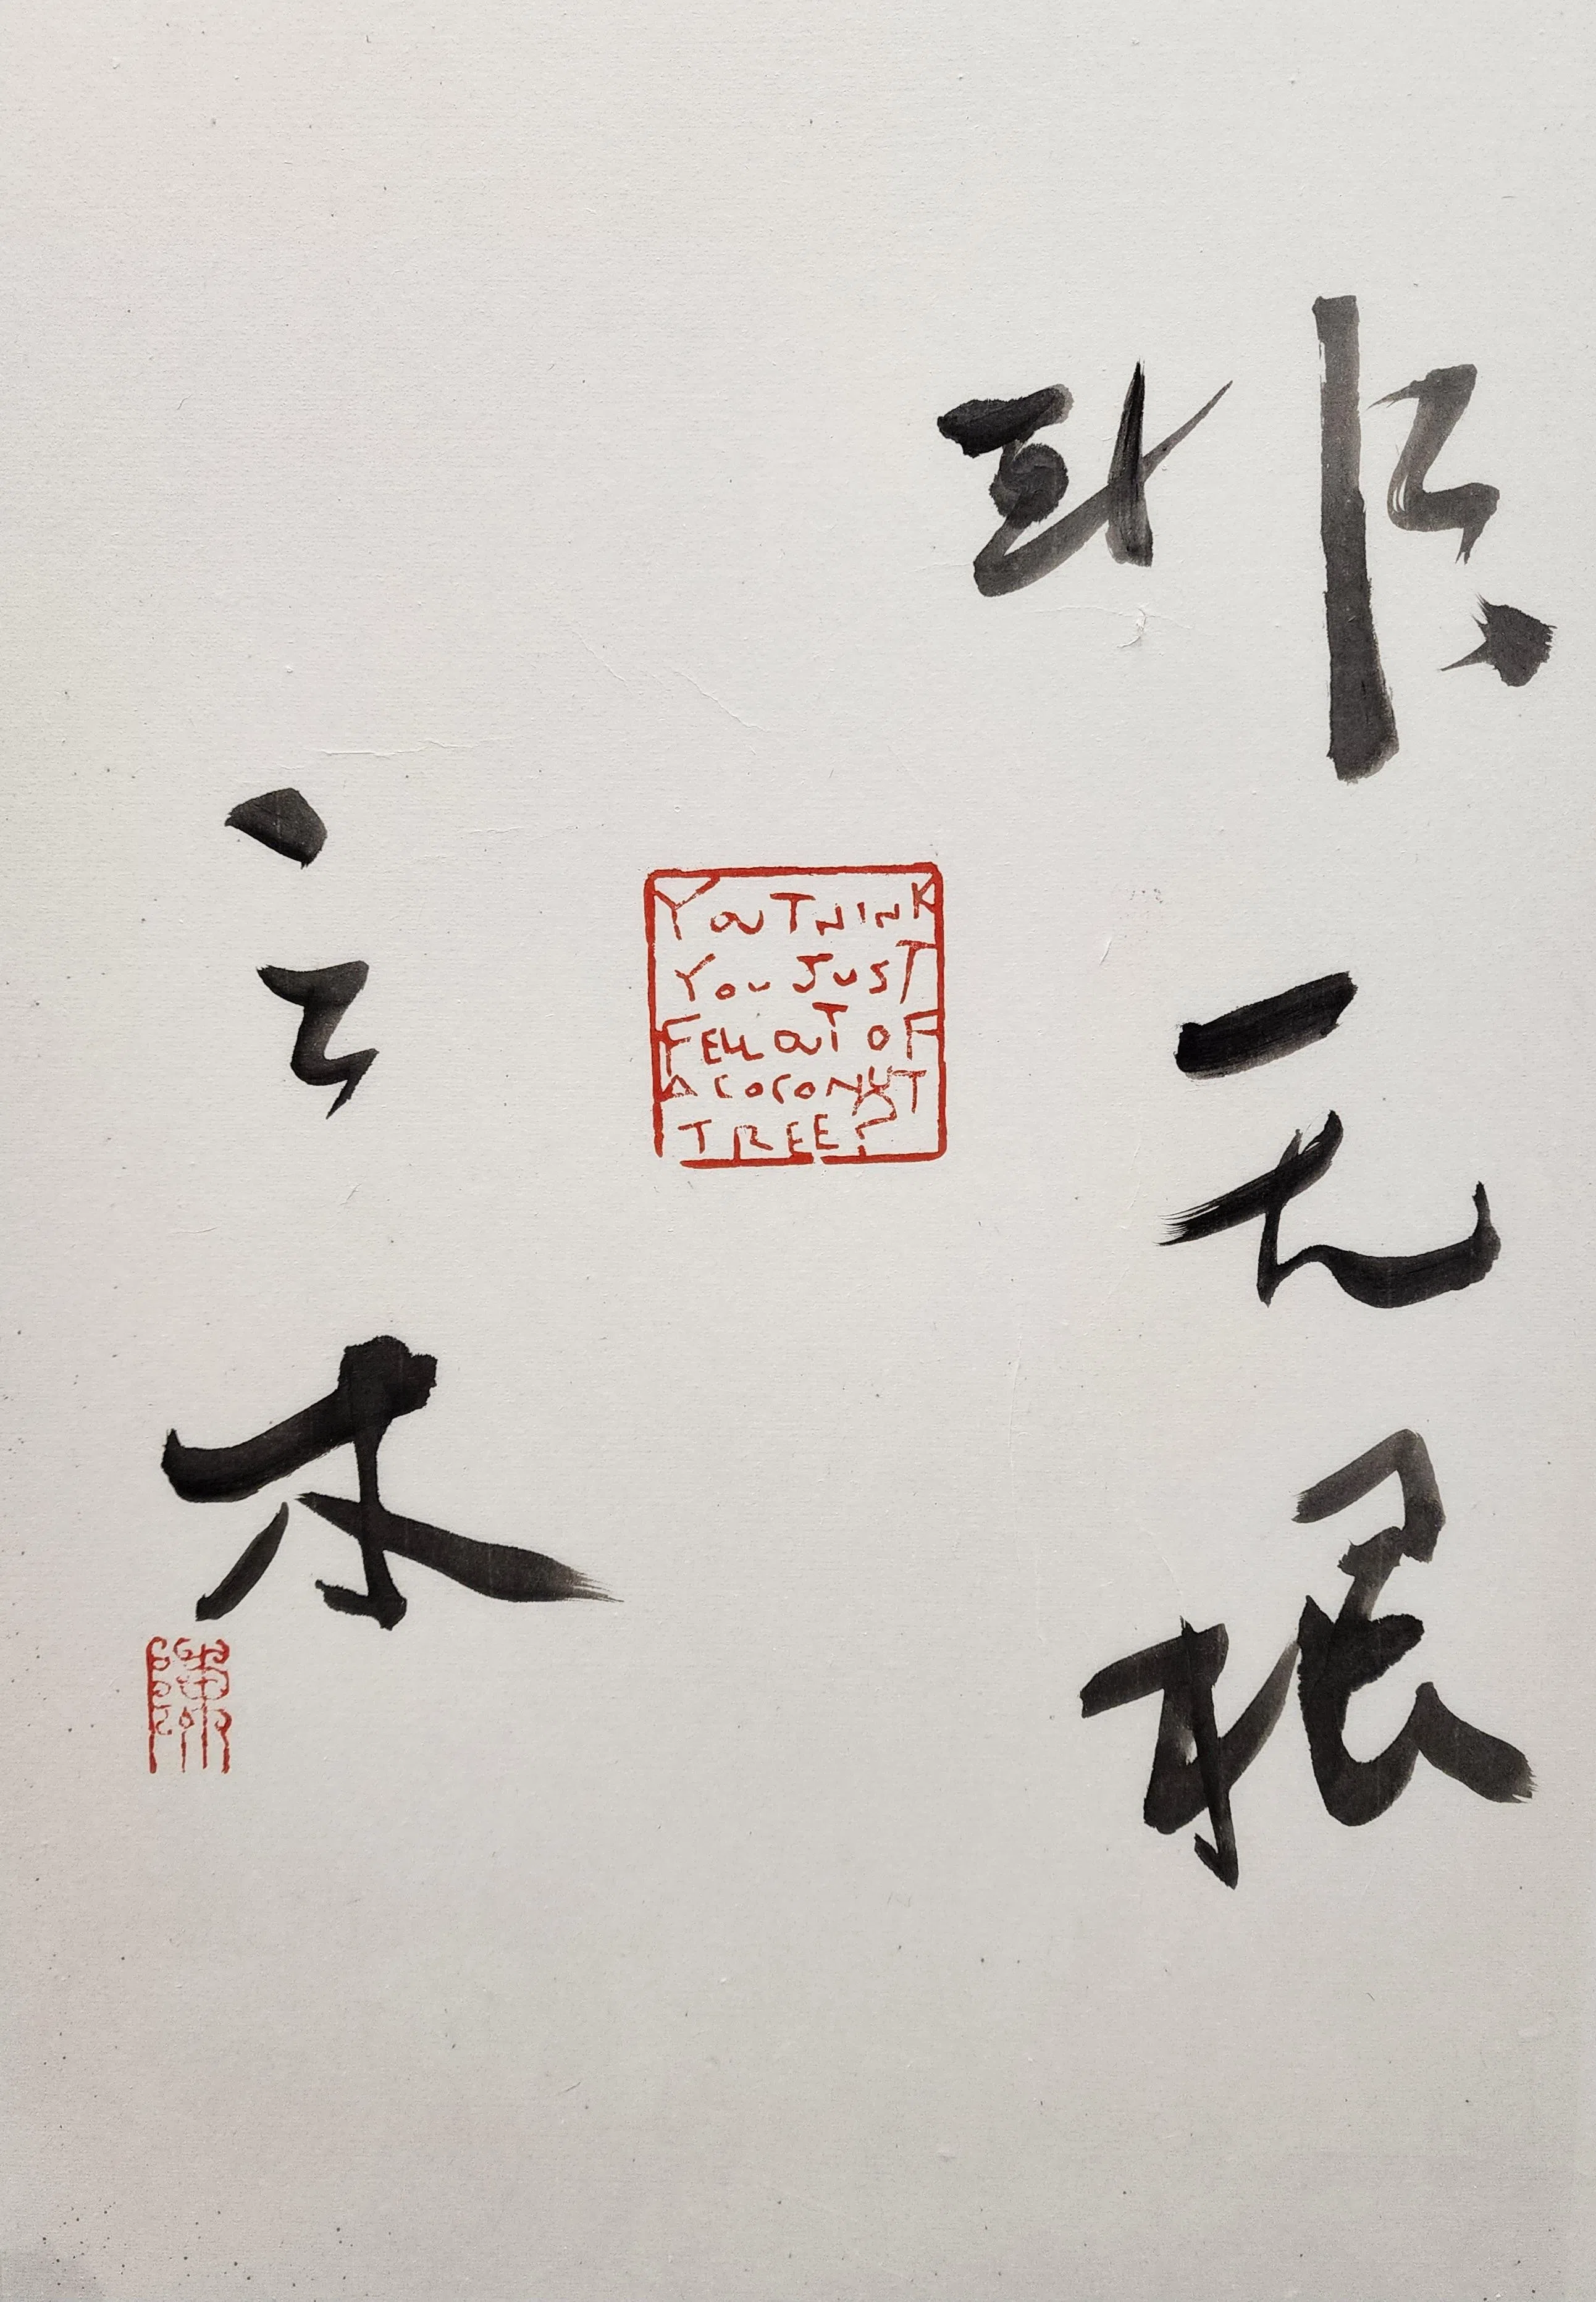 非无根
YOU THINK
YOU JUST
FELL OUT OF
A COCONUT
TREE?
之木
陳